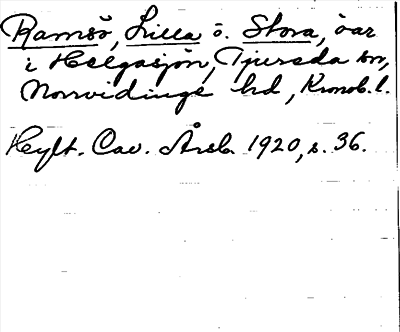 Ramsö, Lilla o. Stora, öar
i Helgasjön, Tjureda sn,
Norrvidinge hd, Kronob. l.
Hylt. Cav. Årsb. 1920, s. 36.